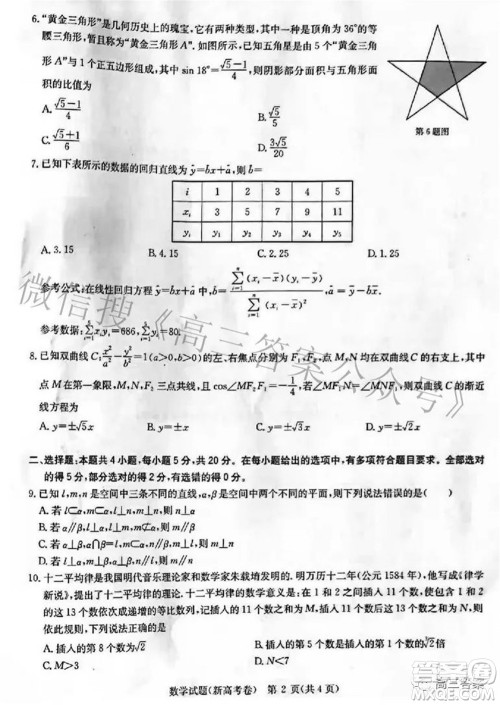 6. “黄金三角形”是几何历史上的瑰宝，它有两种类型，其中一种是顶角为36°的等
腰三角形，暂且称为“黄金三角形A”. 如图所示，已知五角星是由5个“黄金三角
形A”与1个正五边形组成，其中 sin 18°=(√5-1)/4，则阴影部分面积与五角形面
积的比值为
A. (√5-1)/4 B. √5/5
C. (√5+1)/6 D. 3√5/20
第6题图
7. 已知下表所示的数据的回归直线为 ŷ=b̂x+â，则b̂=
i 1 2 3 4 5
xᵢ 3 4 5 9 11
yᵢ y₁ y₂ y₃ y₄ y₅
A. 3.15 B. 4.15 C. 2.25 D. 1.25
参考公式：在线性回归方程 ŷ=b̂x+â 中，b̂=∑(xᵢ-x̄)(yᵢ-ȳ)/∑(xᵢ-x̄)².
参考数据：∑xᵢyᵢ=686，∑yᵢ=80.
8. 已知双曲线 C：x²/a²-y²/b²=1(a>0,b>0)的左、右焦点分别为F₁，F₂，点M，N均在双曲线C的右支上，其中
点M在第一象限，M，N，F₂三点共线，且 cos∠MF₂F₁=-1/4，若∠F₁NM=∠MNF₁，则双曲线C的渐近
线方程为
A. y=±√5x B. y=±√3x C. y=±√2x D. y=±x
二、选择题：本题共4小题，每小题5分，共20分。在每小题给出的选项中，有多项符合题目要求。全部选对
的得5分，部分选对的得2分，有选错的得0分。
9. 已知l，m，n是空间中三条不同的直线，α，β是空间中两个不同的平面，则下列说法错误的是( )
A. 若l⊂α，m⊂α，l⊥n，m⊥n，则n⊥α
B. 若α//β，l⊥α，l⊥m，m⊄β，则m//β
C. 若α//β，α∩β=l，m//α，则m//l
D. 若l⊥α，m⊥α，l//n，则m//n
10. 十二平均律是我国明代音乐理论家和数学家朱载堉发明的. 明万历十二年（公元1584年），他写成《律学
新说》，提出了十二平均律的理论. 十二平均律的数学意义是：在1和2之间插入11个数使包含1和2
的这13个数依次成递增的等比数列. 记插入的11个数之和为M，插入11个数后这13个数之和为N，则
依此规则，下列说法正确的是
A. 插入的第8个数为 B. 插入的第5个数是插入的第1个数的 倍
C. M>3 D. N<7
数学试题（新高考卷） 第2页（共4页）
微信搜《高三答案公众号》
高三答案